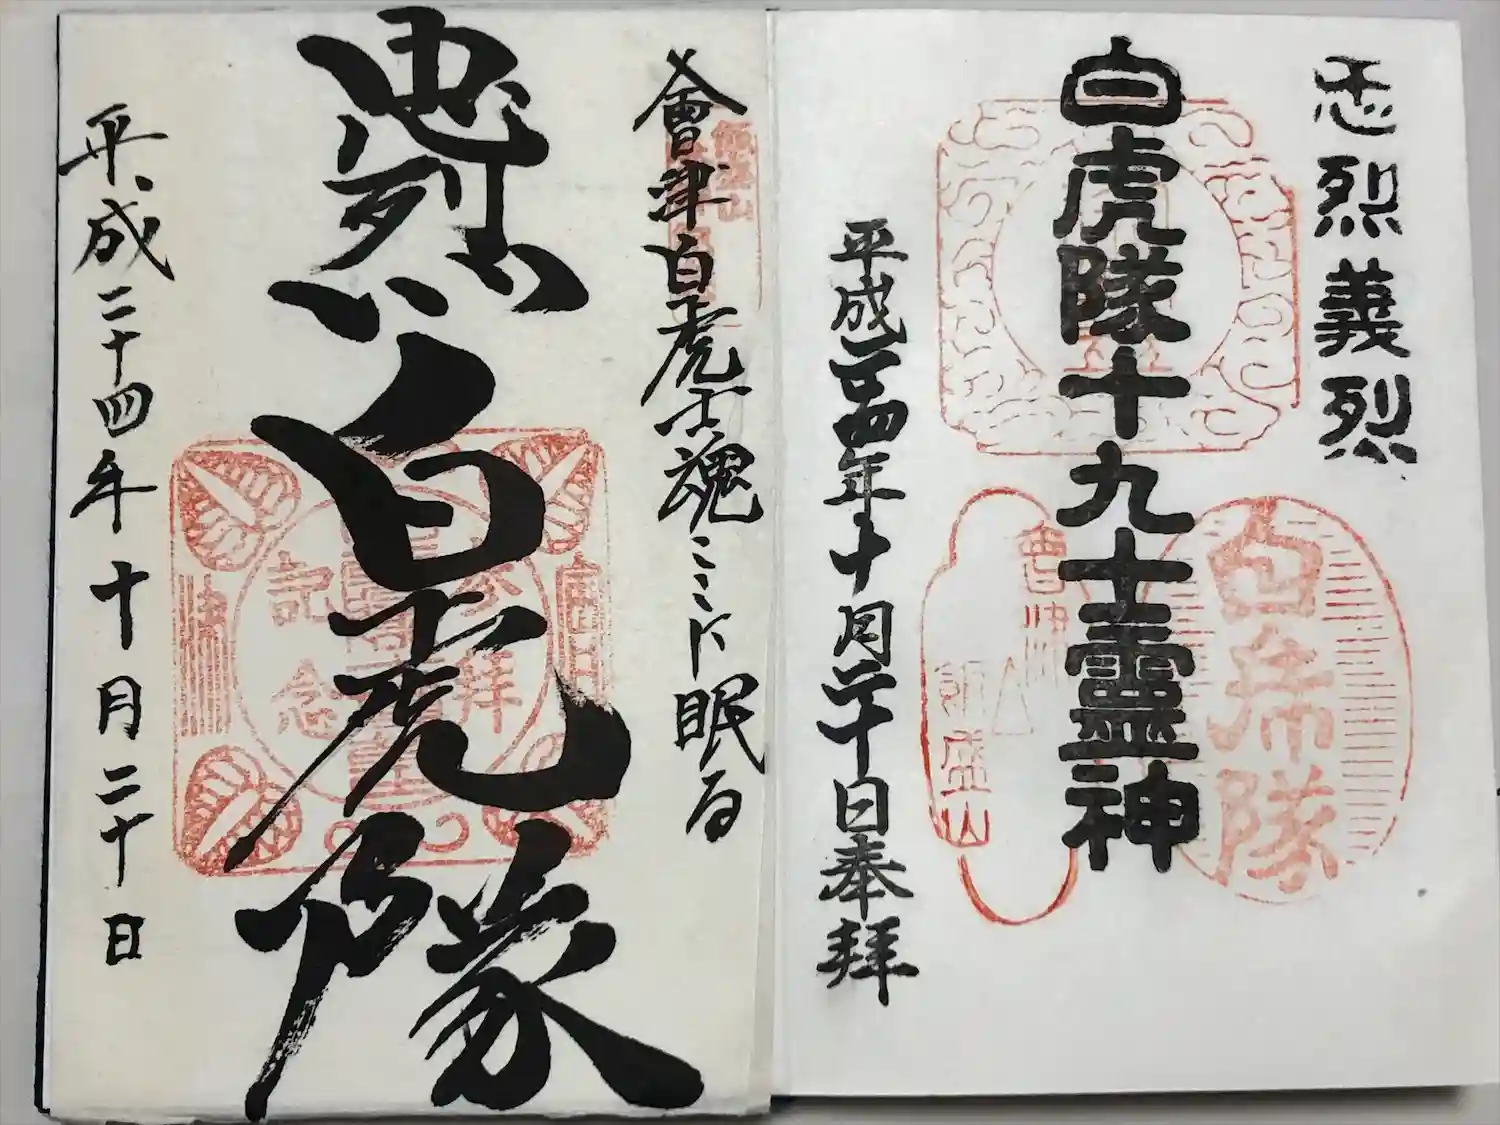 忠烈義烈
白虎隊十九士霊神
平成二十四年十月二十日奉拝
白虎隊
會津
飯盛山
會津白虎士魂ここに眠る
忠烈
白虎隊
参拝
記念
平成二十四年十月二十日